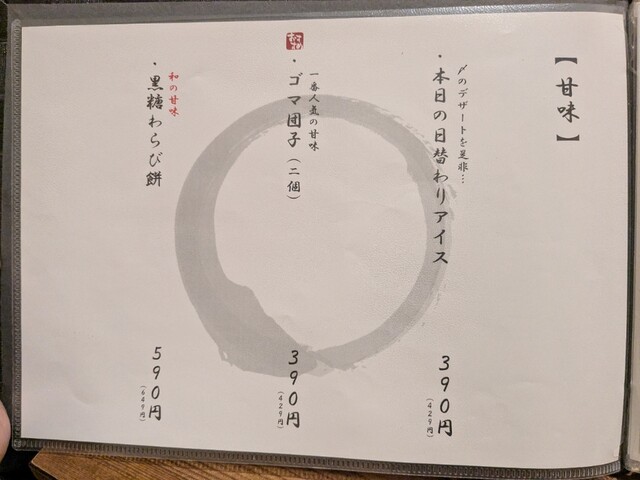 【甘味】
〆のデザートを是非…
・本日の日替わりアイス
390円
(429円)
一番人気の甘味
・ゴマ団子(二個)
390円
(429円)
和の甘味
・黒糖わらび餅
590円
(649円)